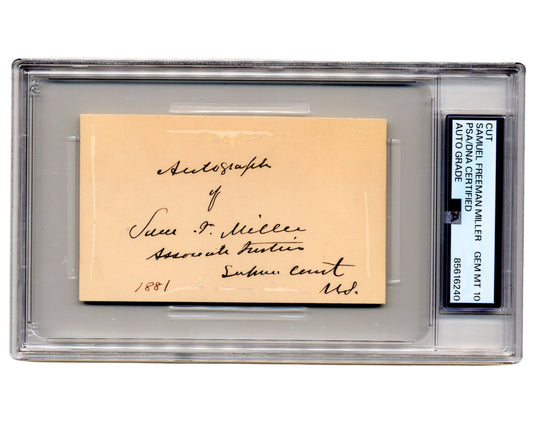 Autograph
of
Sam. F. Miller
Associate Justice
Supreme Court
U.S.
1881
CUT
SAMUEL FREEMAN MILLER GEM MT 10
PSA/DNA CERTIFIED
AUTO GRADE 85616240